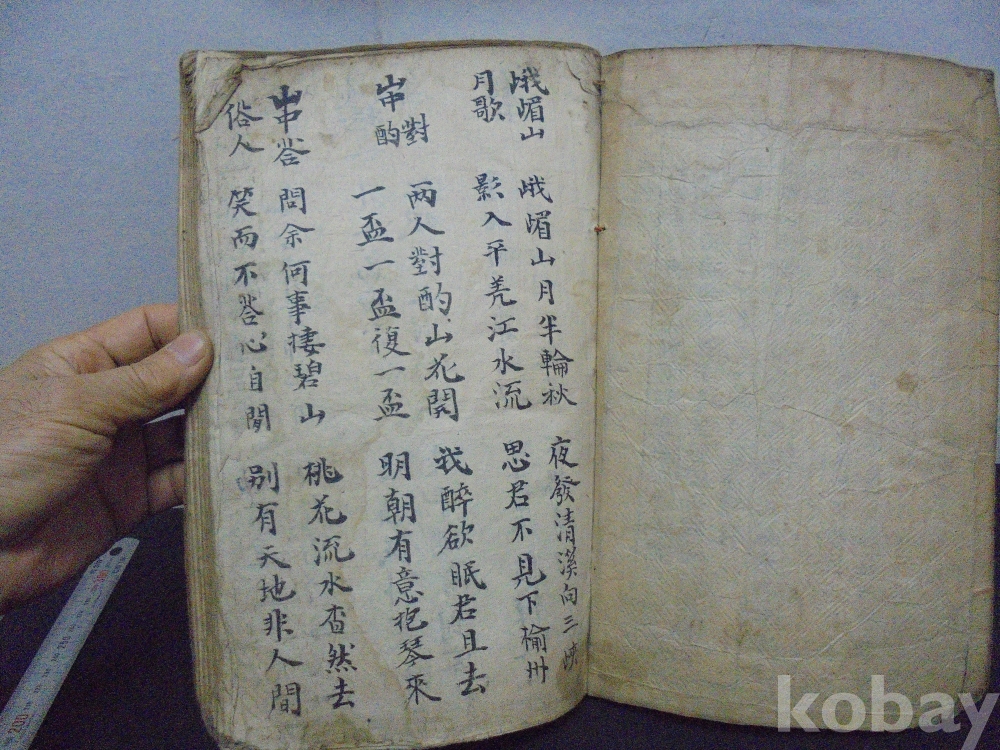 峨嵋山
月歌
峨嵋山月半輪秋
影入平羌江水流
夜發清溪向三峽
思君不見下楡州
山中對
酌
两人對酌山花開
一盃一盃復一盃
我醉欲眠君且去
明朝有意抱琴來
山中荅
俗人
問余何事棲碧山
笑而不荅心自閒
桃花流水杳然去
別有天地非人間
200
kobay